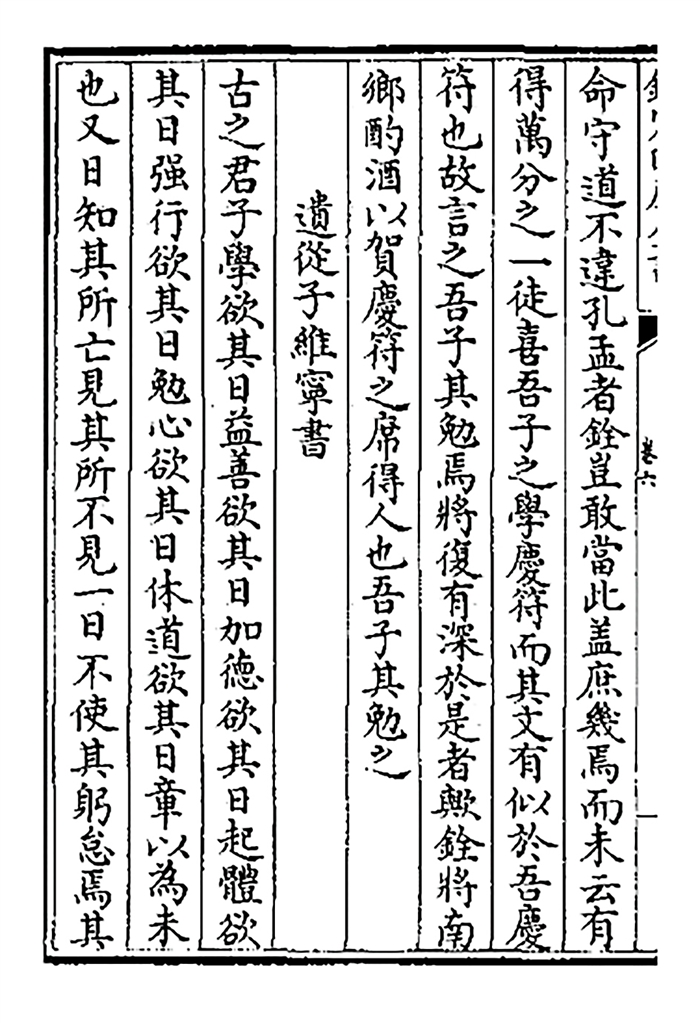 卷六
命守道不違孔孟者銓豈敢當此盖庶幾焉而未云有
得萬分之一徒喜吾子之學慶符而其文有似於吾慶
符也故言之吾子其勉焉將復有深於是者歟銓將南
鄉酌酒以賀慶符之席得人也吾子其勉之
遺從子維寧書
古之君子學欲其日益善欲其日加德欲其日起體欲
其日强行欲其日勉心欲其日休道欲其日章以為未
也又日知其所亡見其所不見一日不使其躬怠焉其